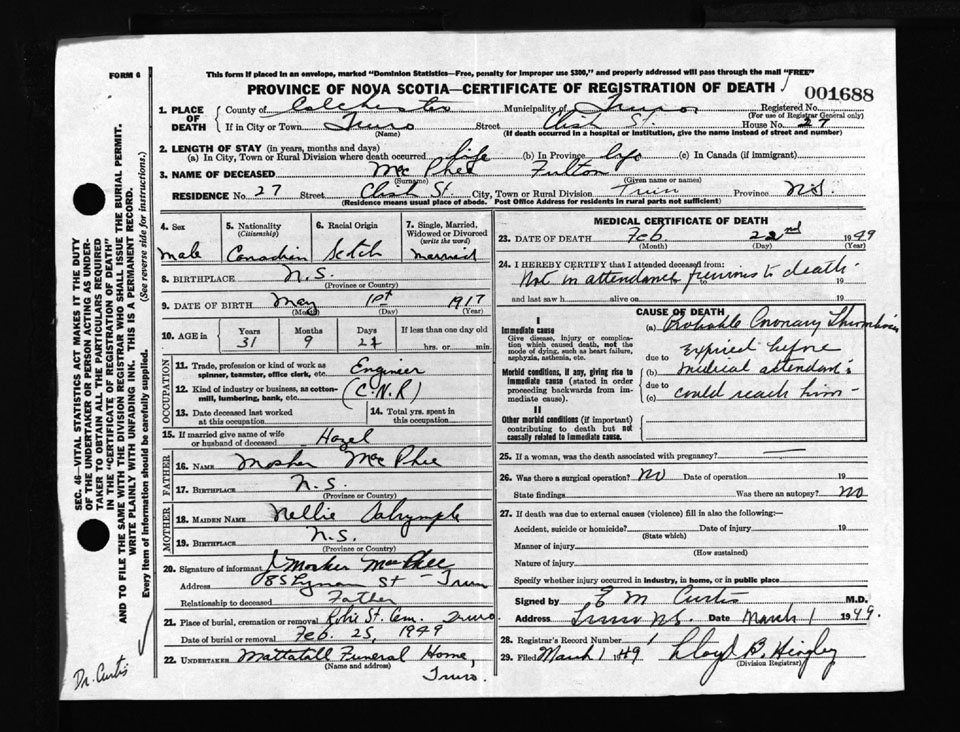 FORM 6
This form if placed in an envelope, marked "Dominion Statistics—Free, penalty for improper use $300," and properly addressed will pass through the mail "FREE"
PROVINCE OF NOVA SCOTIA—CERTIFICATE OF REGISTRATION OF DEATH
001688
1. PLACE OF DEATH
County of Colchester Municipality of Truro Registered No.
(For use of Registrar General only)
If in City or Town Truro Street St. House No. 27
(Name) (If death occurred in a hospital or institution, give the name instead of street and number)
2. LENGTH OF STAY (in years, months and days)
(a) In City, Town or Rural Division where death occurred life (b) In Province life (c) In Canada (if immigrant)
3. NAME OF DECEASED Mc Phee Fulton
(Surname) (Given name or names)
RESIDENCE No. 27 Street St. City, Town or Rural Division Truro Province N.S.
(Residence means usual place of abode. Post Office Address for residents in rural parts not sufficient)
4. Sex
Male
5. Nationality
(Citizenship)
Canadian
6. Racial Origin
Scotch
7. Single, Married, Widowed or Divorced
(write the word)
Married
8. BIRTHPLACE N.S.
(Province or Country)
9. DATE OF BIRTH May 1st 1917
(Month) (Day) (Year)
10. AGE in Years Months Days If less than one day old
31 9 21 hrs. or min.
OCCUPATION
11. Trade, profession or kind of work as spinner, teamster, office clerk, etc. Engineer
12. Kind of industry or business, as cotton-mill, lumbering, bank, etc. (C.N.R)
13. Date deceased last worked at this occupation
14. Total yrs. spent in this occupation
15. If married give name of wife or husband of deceased Hazel
FATHER
16. NAME Mosher McPhee
17. BIRTHPLACE N.S.
(Province or Country)
MOTHER
18. MAIDEN NAME Nellie Dalrymple
19. BIRTHPLACE N.S.
(Province or Country)
20. Signature of informant J Mosher MacPhee
Address 85 Lyman St - Truro
Relationship to deceased Father
21. Place of burial, cremation or removal Robie St. Cem. Truro
Date of burial or removal Feb. 25, 1949
22. UNDERTAKER Mattatall Funeral Home,
(Name and address) Truro.
MEDICAL CERTIFICATE OF DEATH
23. DATE OF DEATH Feb. 22nd 1949
(Month) (Day) (Year)
24. I HEREBY CERTIFY that I attended deceased from:
Not in attendance previous to death 19
and last saw h alive on 19
CAUSE OF DEATH
I
Immediate cause
Give disease, injury or complication which caused death, not the mode of dying, such as heart failure, asphyxia, asthenia, etc.
(a) Probable Coronary Thrombosis
due to expired before
Morbid conditions, if any, giving rise to immediate cause (stated in order proceeding backwards from immediate cause).
(b) medical attendant
due to
(c) could reach him
II
Other morbid conditions (if important) contributing to death but not causally related to immediate cause.
25. If a woman, was the death associated with pregnancy? —
26. Was there a surgical operation? No Date of operation 19
State findings Was there an autopsy? No
27. If death was due to external causes (violence) fill in also the following:—
Accident, suicide or homicide? Date of injury 19
(State which)
Manner of injury
(How sustained)
Nature of injury
Specify whether injury occurred in industry, in home, or in public place
Signed by E M Curtis M.D.
Address Truro N.S. Date March 1 1949.
28. Registrar's Record Number 1
29. Filed March 1 1949 Lloyd B. Hingley
(Division Registrar)
SEC. 46—VITAL STATISTICS ACT MAKES IT THE DUTY
OF THE UNDERTAKER OR PERSON ACTING AS UNDER-
TAKER TO OBTAIN ALL THE PARTICULARS REQUIRED
IN THE "CERTIFICATE OF REGISTRATION OF DEATH"
AND TO FILE THE SAME WITH THE DIVISION REGISTRAR WHO SHALL ISSUE THE BURIAL PERMIT.
WRITE PLAINLY WITH UNFADING INK. THIS IS A PERMANENT RECORD.
Every item of information should be carefully supplied. (See reverse side for instructions.)
Dr. Curtis